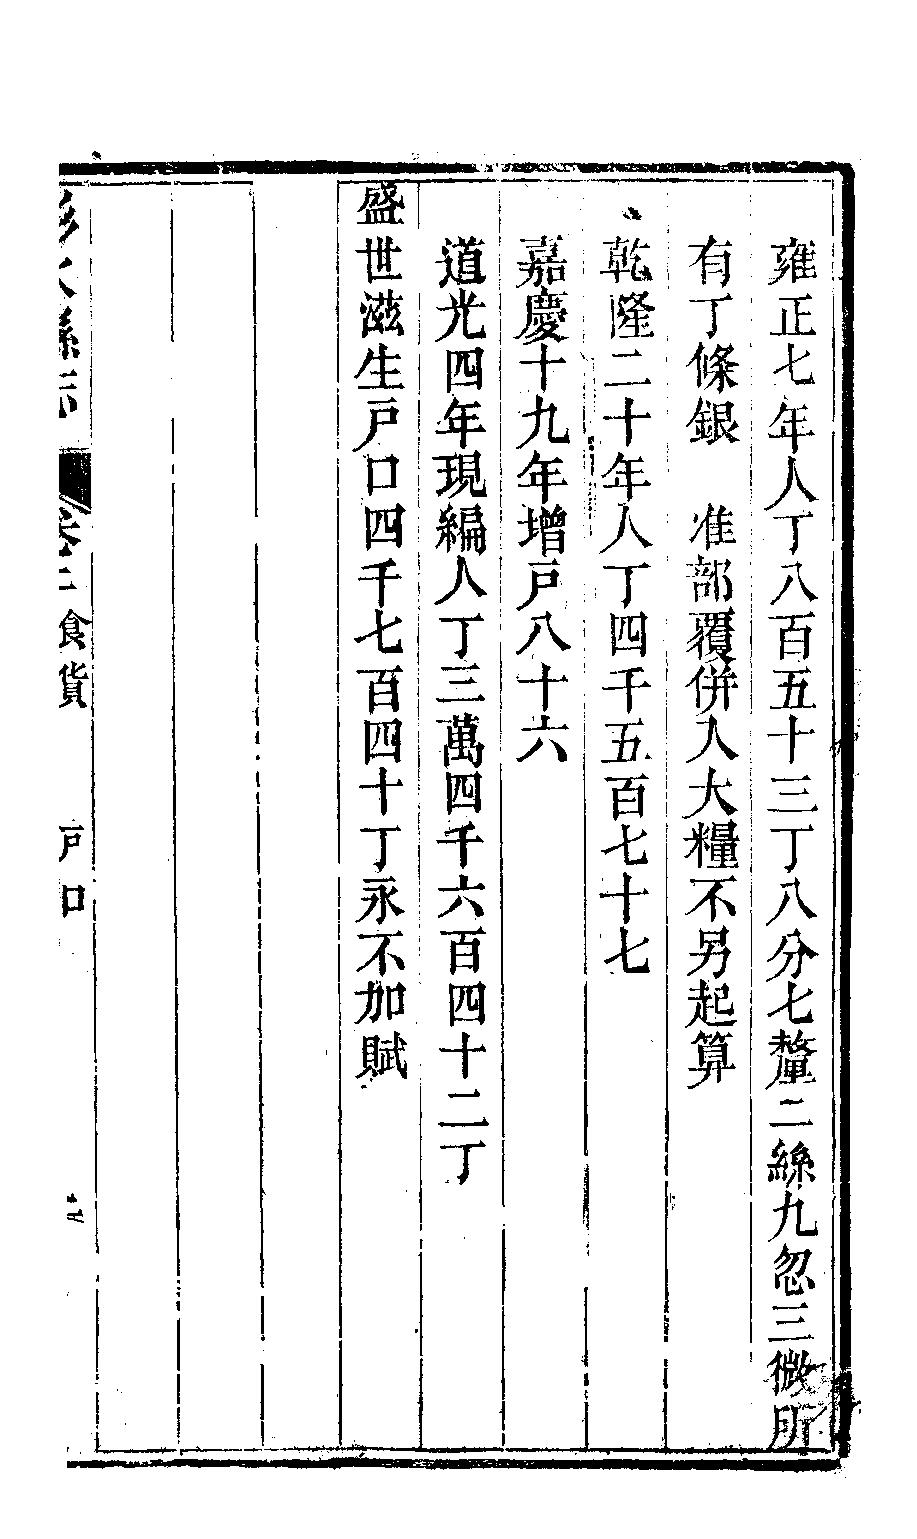 雍正七年人丁八百五十三丁八分七釐二絲九忽三微所
有丁條銀　准部覆併入大糧不另起算
乾隆二十年人丁四千五百七十七
嘉慶十九年增戸八十六
道光四年現編人丁三萬四千六百四十二丁
盛世滋生戸口四千七百四十丁永不加賦
縣志　卷三食貨　戸口